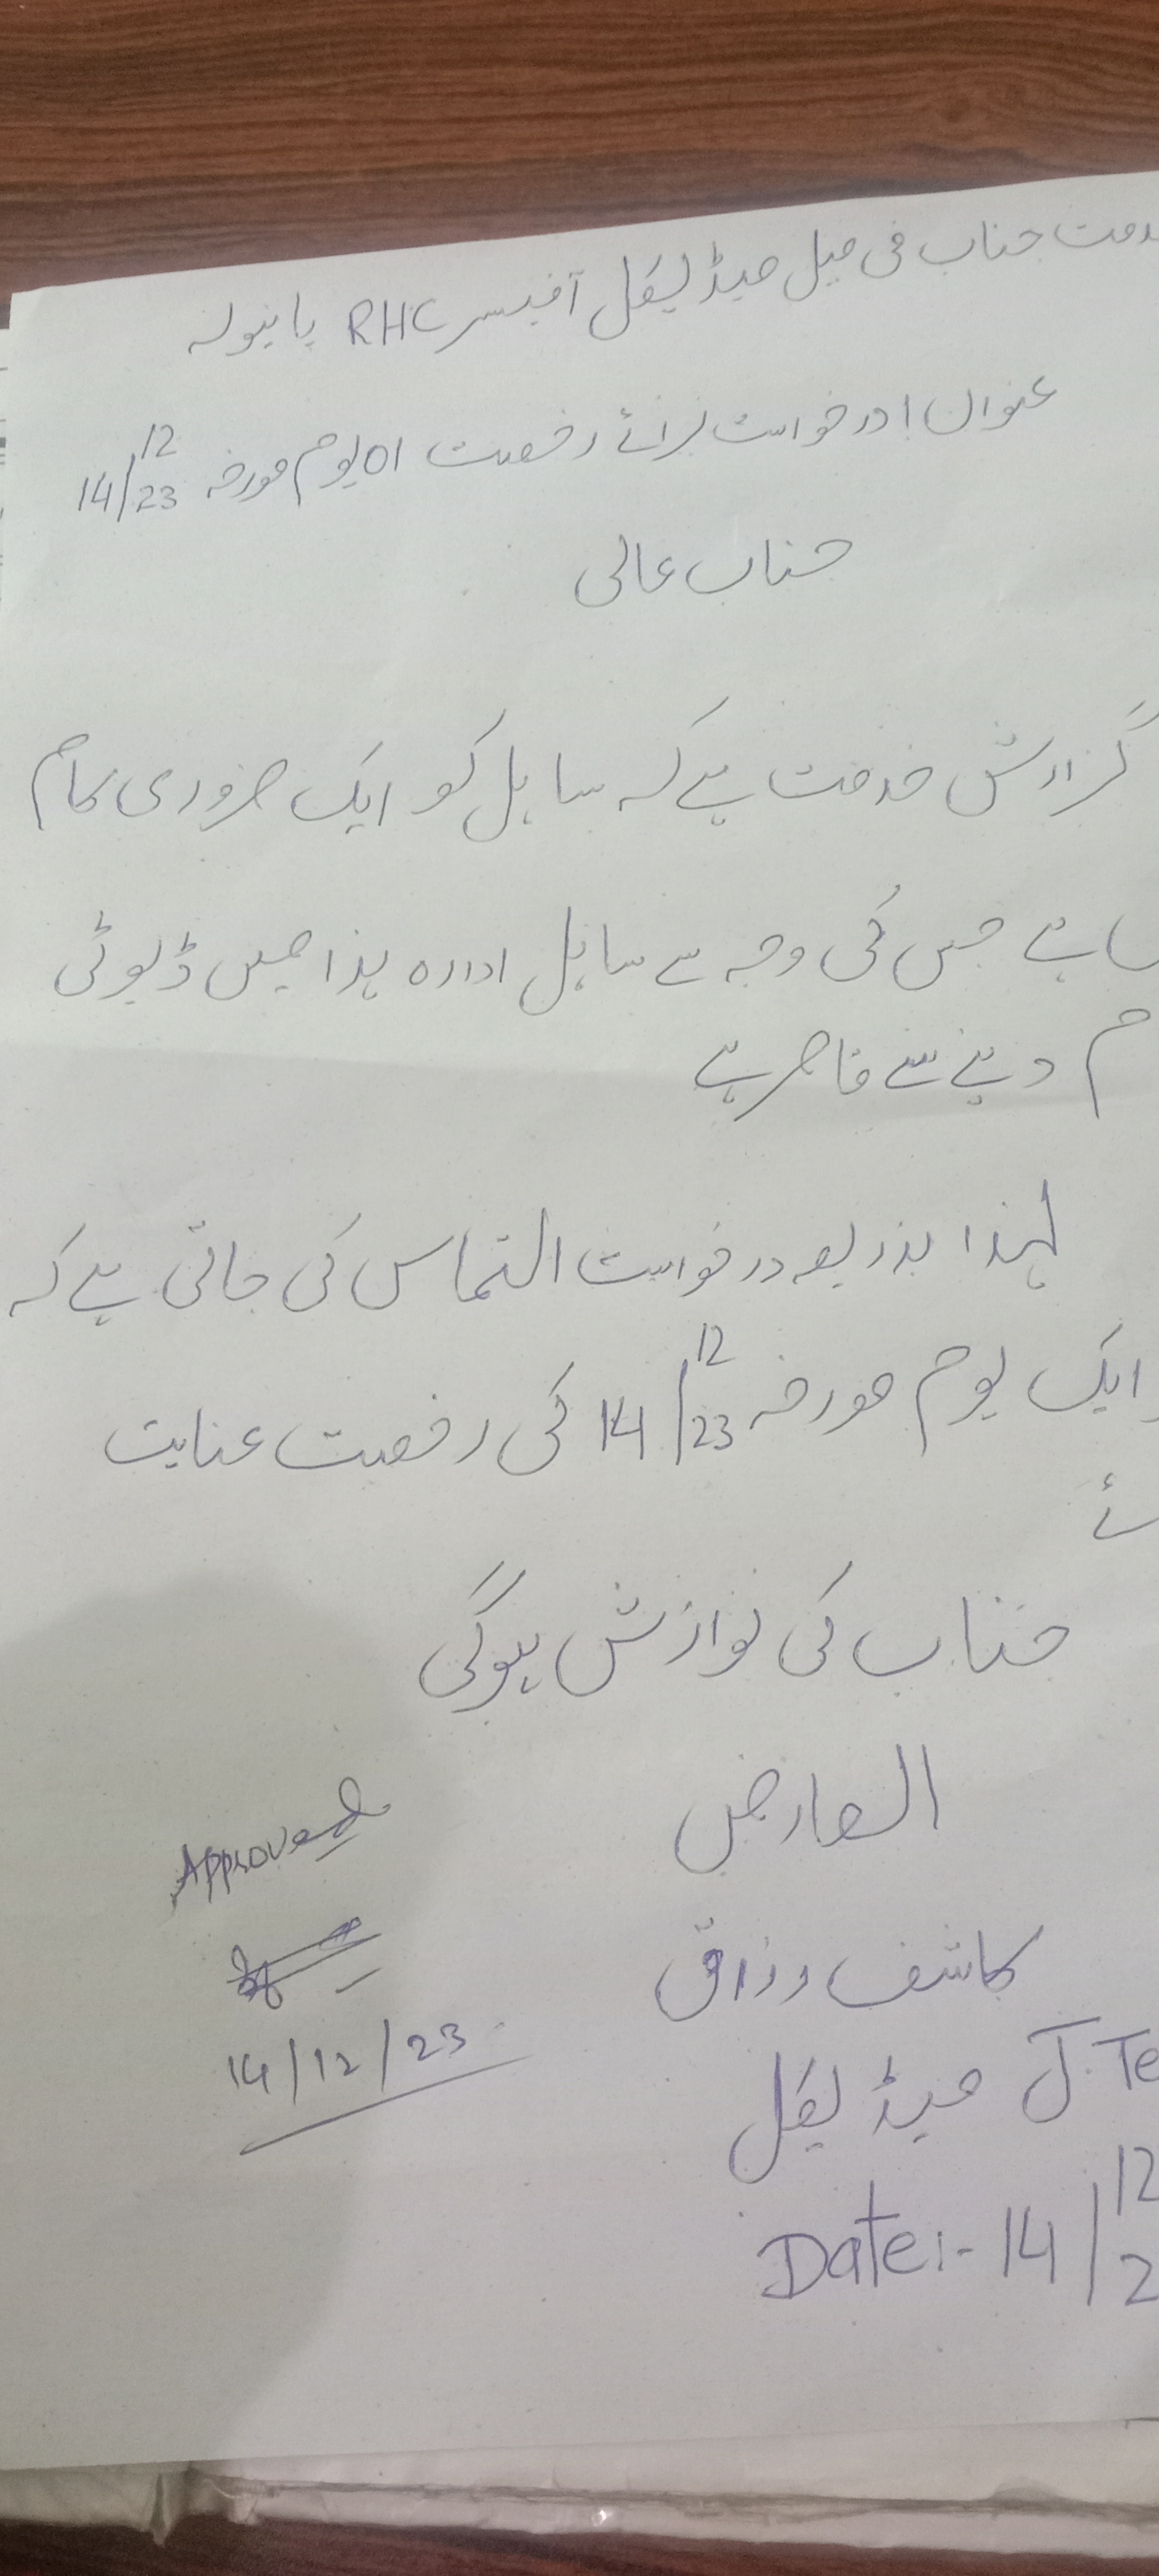 خدمت جناب فی میل میڈیکل آفیسر RHC باہیوالہ
عنوان / درخواست برائے رخصت 01 یوم مورخہ 14/12/23
جناب عالی
گزارش خدمت ہے کہ سائل کو ایک ضروری کام
ہے جس کی وجہ سے سائل ادارہ ہذا میں ڈیوٹی
دینے سے قاصر ہے
لہذا بذریعہ درخواست التماس کی جاتی ہے کہ
ایک یوم مورخہ 14/12/23 کی رخصت عنایت
ئے
جناب کی نوازش ہوگی
العارض
Approved
کاشف رزاق
14/12/23
میڈیکل
Date:- 14/12